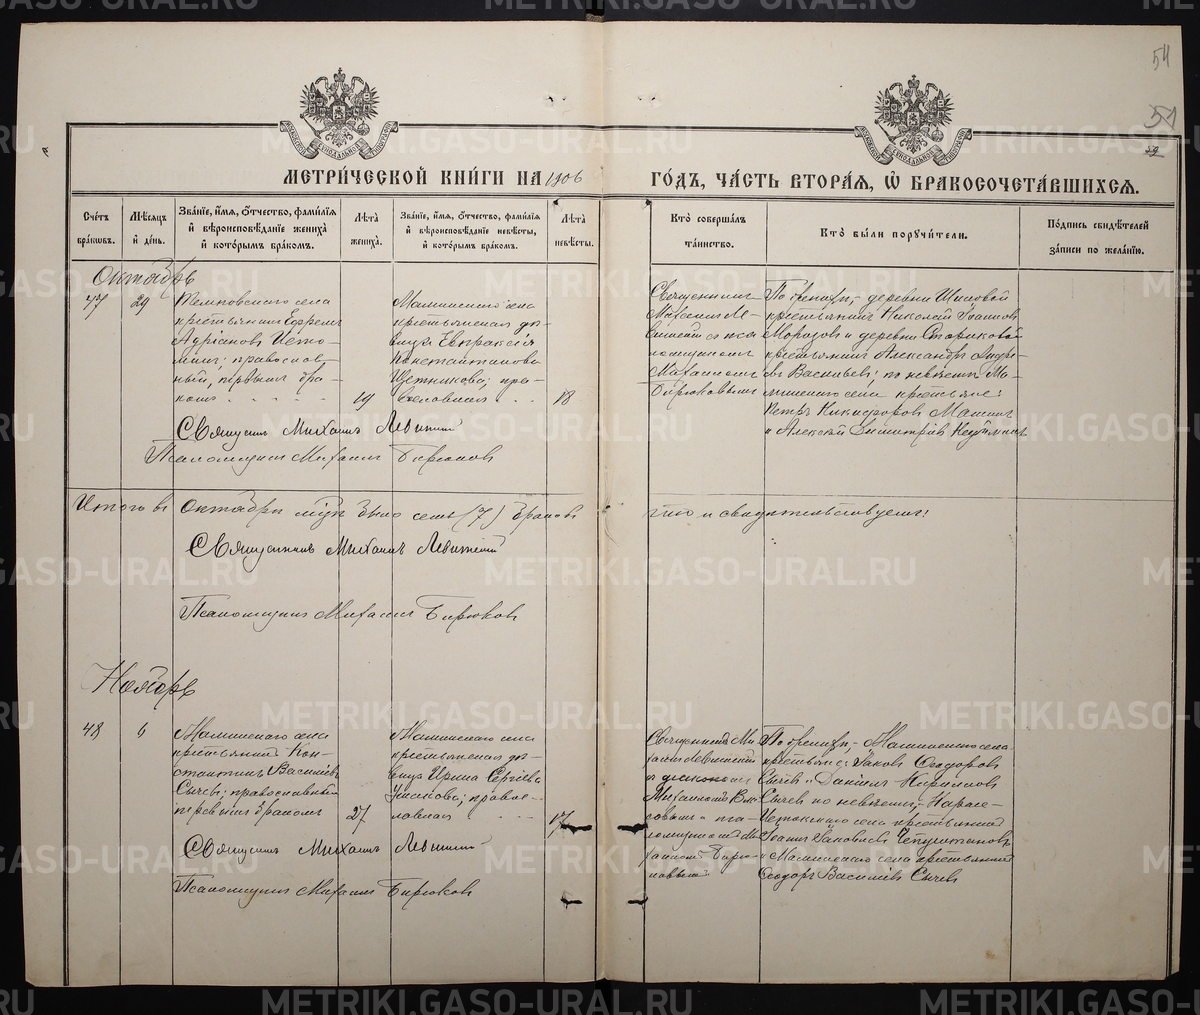 54
51
МЕТРИ́ЧЕСКОЙ КНИ́ГИ НА 1906 ГО́ДЪ, ЧА́СТЬ ВТОРА́Я, Ѡ БРАКОСОЧЕТА́ВШИХСЯ.
Сче́тъ бра́кѡвъ.
Мѣ́сяцъ и҆ де́нь.
Зва́нїе, и҆́мя, ѻ҆́тчество, фамилїя и҆ вѣроисповѣ́данїе жениха̀ и҆ кото́рымъ бра́комъ.
Лѣ́та жениха̀.
Зва́нїе, и҆́мя, ѻ҆́тчество, фамилїя и҆ вѣроисповѣ́данїе невѣ́сты, и҆ кото́рымъ бра́комъ.
Лѣ́та невѣ́сты.
Кто̀ соверша́лъ та́инство.
Кто̀ бы́ли пору́чители.
По́дпись свидѣ́телей за́писи по жела́нїю.
Октябрь
47 29
села
крестьянинъ Ефремъ
Адріановъ Исто-
минъ; православ-
ный, первымъ бра-
комъ
19
Маминскаго села
крестьянская дѣ-
вица Евпраксія
Константинова
православная
18
Священникъ
Михаилъ Ле-
витскій съ пса-
ломщикомъ
Михаиломъ
Бирюковымъ
По женихѣ,- деревни Шиловой
крестьянинъ Николай Іоанновъ
Морозовъ и деревни
крестьянинъ Александръ Андре-
евъ Васильевъ; по невѣстѣ Ма-
минскаго села крестьяне:
Петръ Никифоровъ Маминъ
и Алексѣй Димитріевъ
Священникъ Михаилъ Левитскій
Псаломщикъ Михаилъ Бирюковъ
Итого въ Октябрѣ мцѣ было семь (7) браковъ
что и свидѣтельствуемъ:
Священникъ Михаилъ Левитскій
Псаломщикъ Михаилъ Бирюковъ
Ноябрь
48 6
Маминскаго села
крестьянинъ Кон-
стантинъ Васильевъ
Сычевъ; православный
первымъ бракомъ
27
Маминскаго села
крестьянская дѣ-
вица Ирина Сергіева
Ушакова; правос-
лавная
17
Священникъ Ми-
хаилъ Левитскій
съ діакономъ
Михаиломъ Вла-
совымъ и пса-
ломщикомъ Ми-
хаиломъ Бирю-
ковымъ
По женихѣ,- Маминскаго села
крестьяне: Іаковъ Ѳеодоровъ
Сычевъ и Даніилъ Кирилловъ
Сычевъ по невѣстѣ,-
села крестьянинъ
Іоаннъ Іаковлевъ
и Маминскаго села крестьянинъ
Ѳеодоръ Василіевъ Сычевъ
Священникъ Михаилъ Левитскій
Псаломщикъ Михаилъ Бирюковъ
METRIKI.GASO-URAL.RU